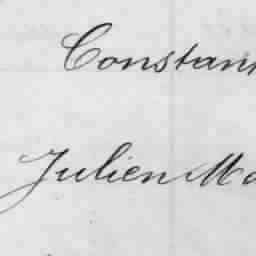 Constan
Julien Ma